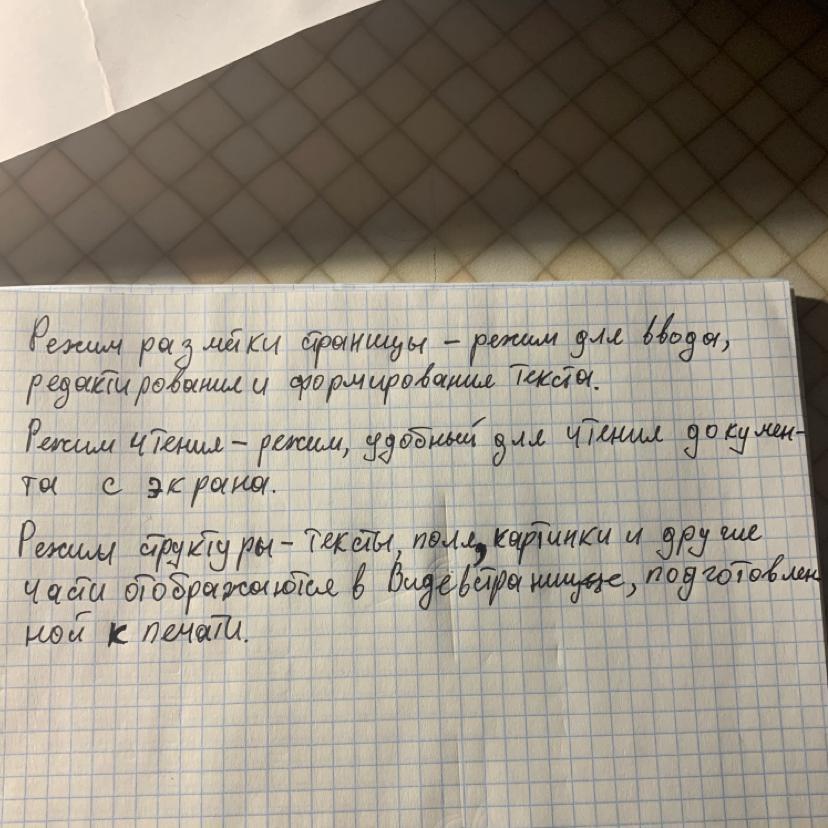 Режим разметки страницы – режим для ввода,
редактирования и формирования текста.
Режим чтения – режим, удобный для чтения докумен-
та с экрана.
Режим структуры – тексты, поля, картинки и другие
части отображаются в виде страницы, подготовлен
ной к печати.